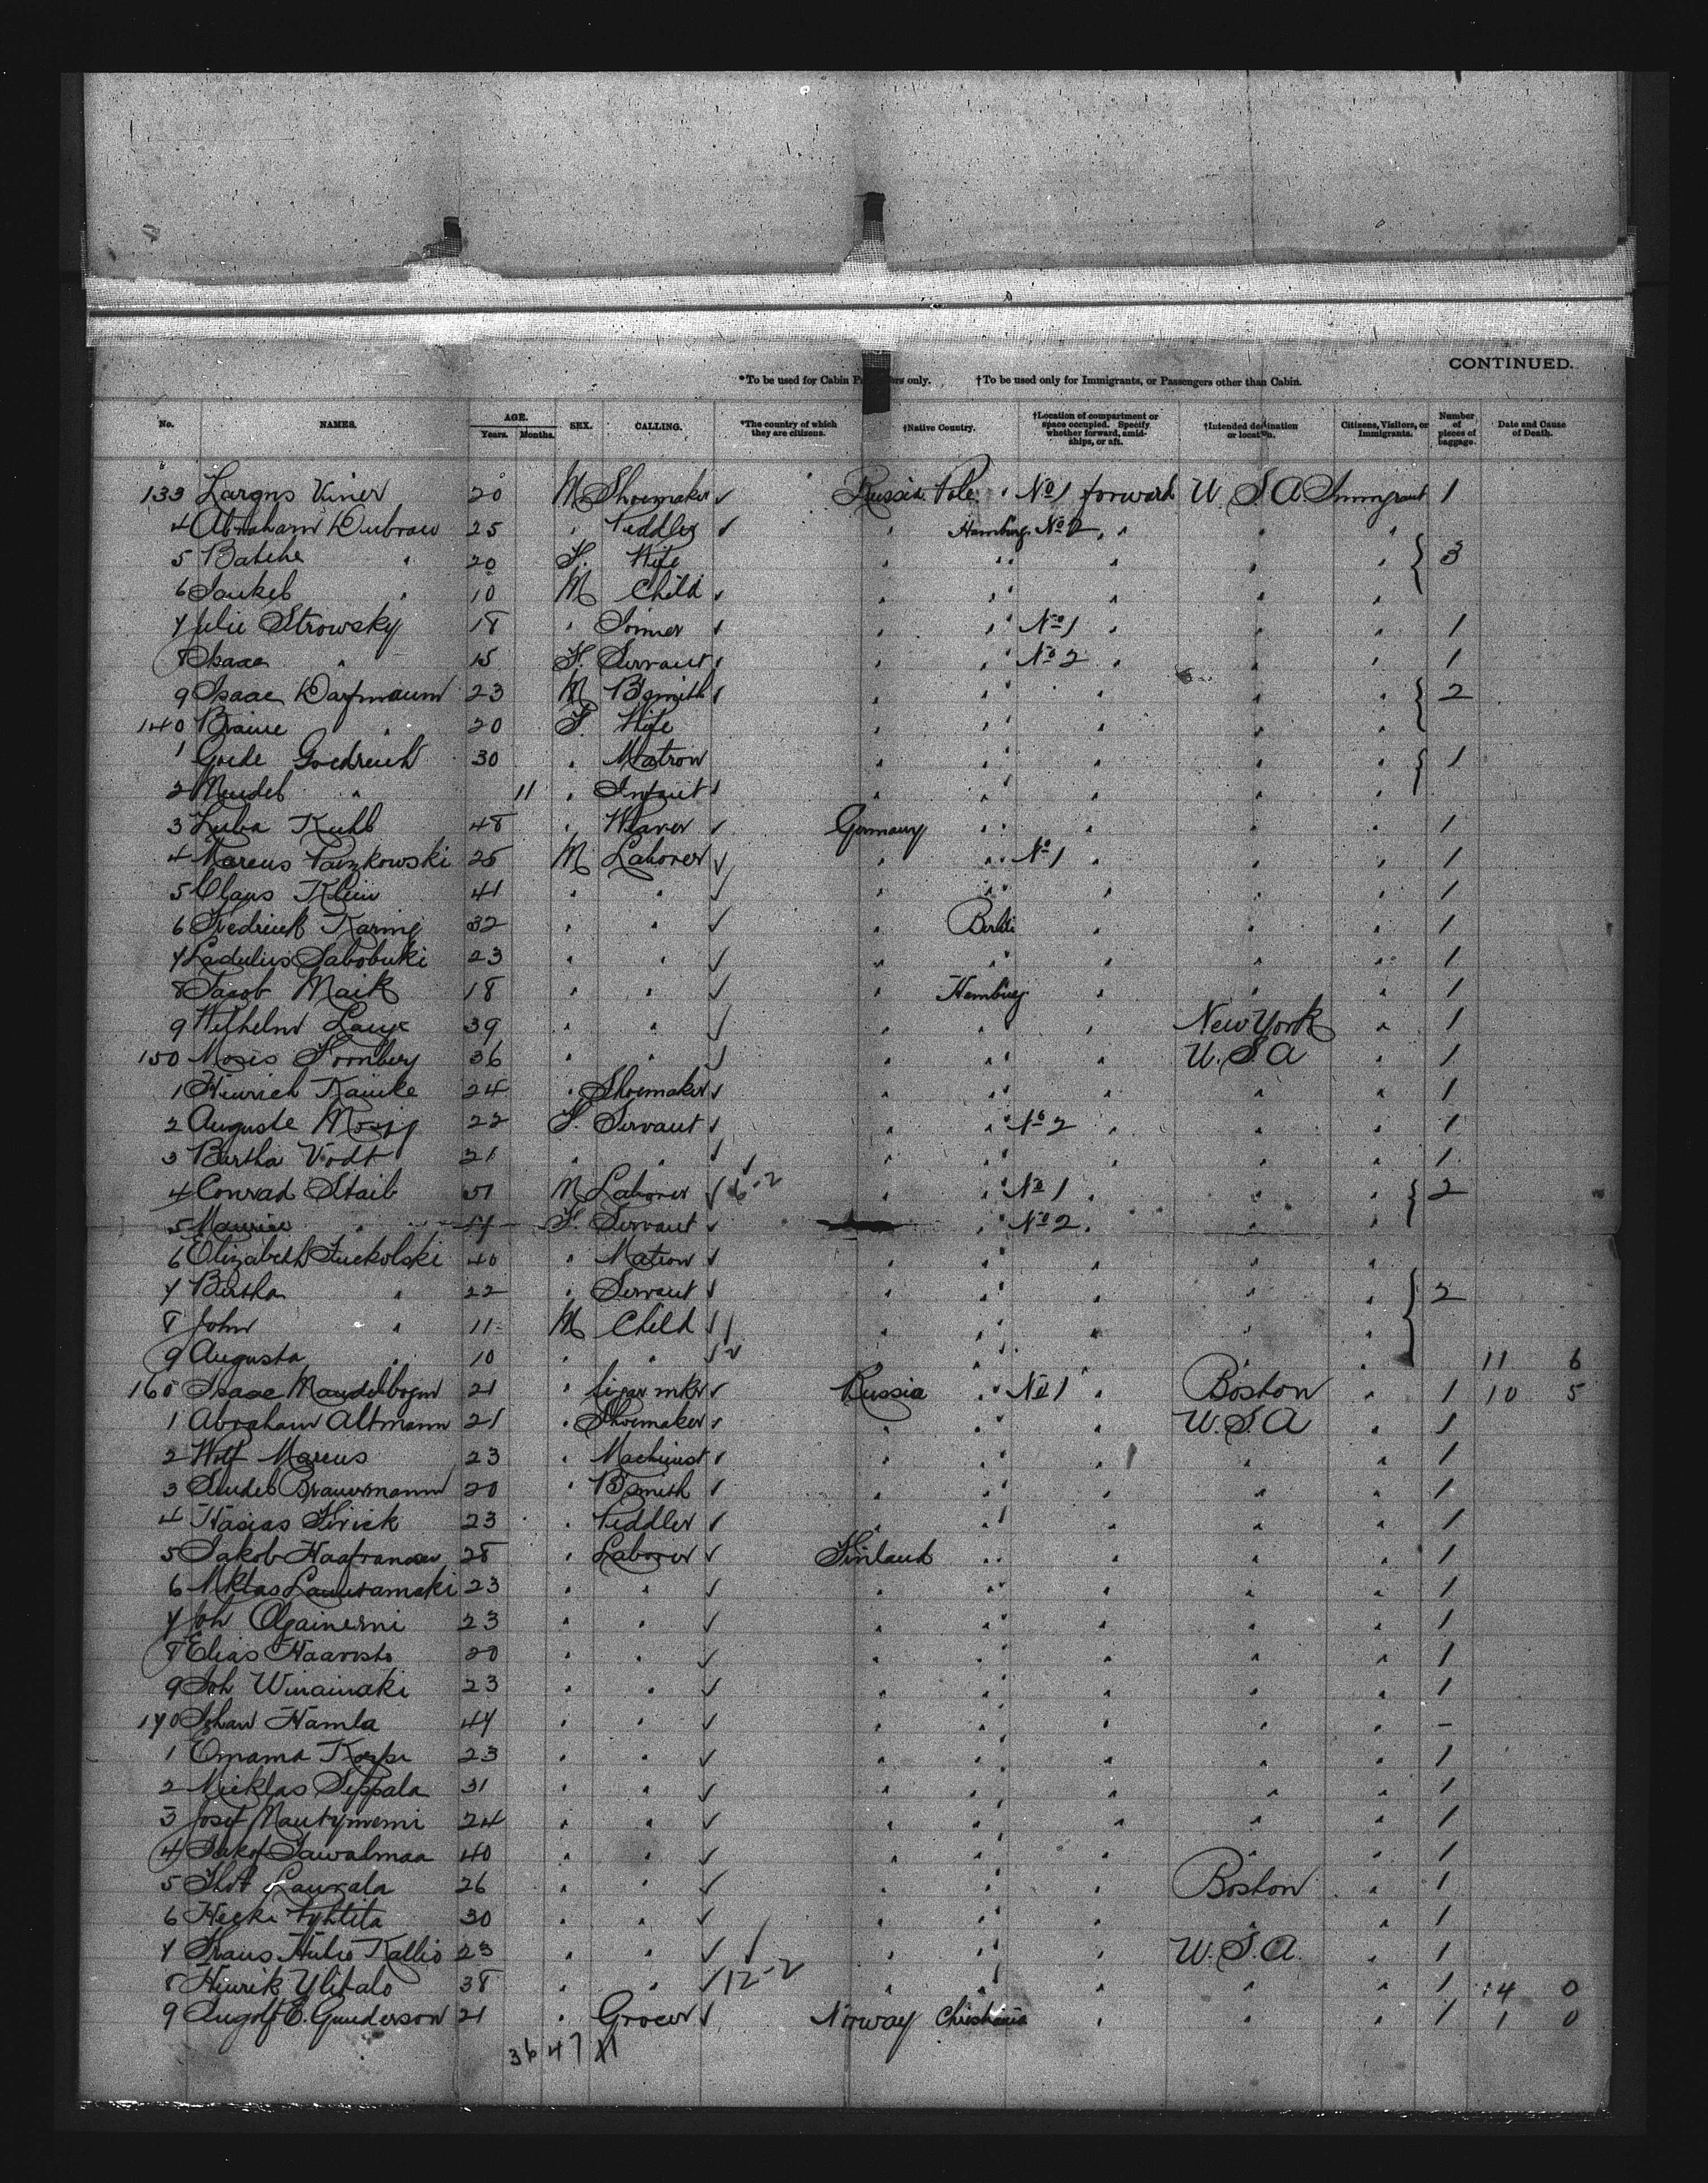 CONTINUED.
*To be used for Cabin Passengers only. †To be used only for Immigrants, or Passengers other than Cabin.
No. NAMES. AGE. Years. Months. SEX. CALLING. *The country of which they are citizens. †Native Country. †Location of compartment or space occupied. Specify whether forward, amidships, or aft. †Intended destination or location. Citizens, Visitors, or Immigrants. Number of pieces of baggage. Date and Cause of Death.
133 Viner 20 M Shoemaker Russia Pole No 1 forward U.S.A. Immigrant 1
4 Abraham Dubrau 25 " Peddler " Hamburg No 2 " " "
5 Batche " 20 F. Wife " " " " " 3
6 Jankel " 10 M Child " " " " "
7 Julie Strowsky 18 " Joiner " " No 1 " " " 1
8 Isaac " 15 F. Servant " " No 2 " " " 1
9 Isaac Darfmaum 23 M B smith " " " " " 2
140 Braine " 20 F. Wife " " " " "
1 Goede 30 " Matron " " " " " 1
2 Mendel " 11 " Infant " " " " "
3 Luba Kuhl 48 " Weaver Germany " " " " 1
4 Marcus 25 M Laborer " " No 1 " " " 1
5 Claus Klein 41 " " " " " " " 1
6 Fredrick 32 " " " Berlin " " " 1
7 Ladulius Sabobuki 23 " " " " " " " 1
8 Jacob Maik 18 " " " Hamburg " " " 1
9 Wilhelm Lange 39 " " " " " New York " 1
150 Moses 36 " " " " " U.S.A " 1
1 Hinrich Kaincke 24 " Shoemaker " " " " " 1
2 Auguste 22 F. Servant " " No 2 " " " 1
3 Bertha Vodt 21 " " " " " " " 1
4 Conrad Staib 51 M Laborer 6-2 " " No 1 " " " 2
5 Maurice " 17 F. Servant " No 2 " " "
6 Elizabeth Tuckolski 40 " Matron " " " " "
7 Bertha " 22 " Servant " " " " " 2
8 John " 11 M Child " " " " "
9 Augusta " 10 " " " " " " " 11 6
160 Isaac Mandelbogm 21 " Cigar mkr Russia " No 1 " Boston " 1 10 5
1 Abraham Altmann 21 " Shoemaker " " " U.S.A " 1
2 Wolf Marcus 23 " Machinist " " " " " 1
3 Sendel Brauermann 20 " B smith " " " " " 1
4 Hasias 23 " Peddler " " " " " 1
5 Jakob 28 " Laborer Finland " " " " 1
6 23 " " " " " " " 1
7 Joh 23 " " " " " " " 1
8 Elias Haavisto 20 " " " " " " " 1
9 Joh Winainaki 23 " " " " " " " 1
170 Johan Hamla 44 " " " " " " " –
1 Omama Korpi 23 " " " " " " " 1
2 Nicklas Seppala 31 " " " " " " " 1
3 Josef 24 " " " " " " " 1
4 Jakof Sawalmaa 40 " " " " " " " 1
5 Laurala 26 " " " " " Boston " 1
6 Heeki 30 " " " " " " " 1
7 Frans Kallio 23 " " " " " U.S.A. " 1
8 Hinrik Ylitalo 38 " " 12-2 " " " " " 1 14 0
9 E. Gunderson 21 " Grocer Norway Christiania " " " 1 1 0
36 47 11